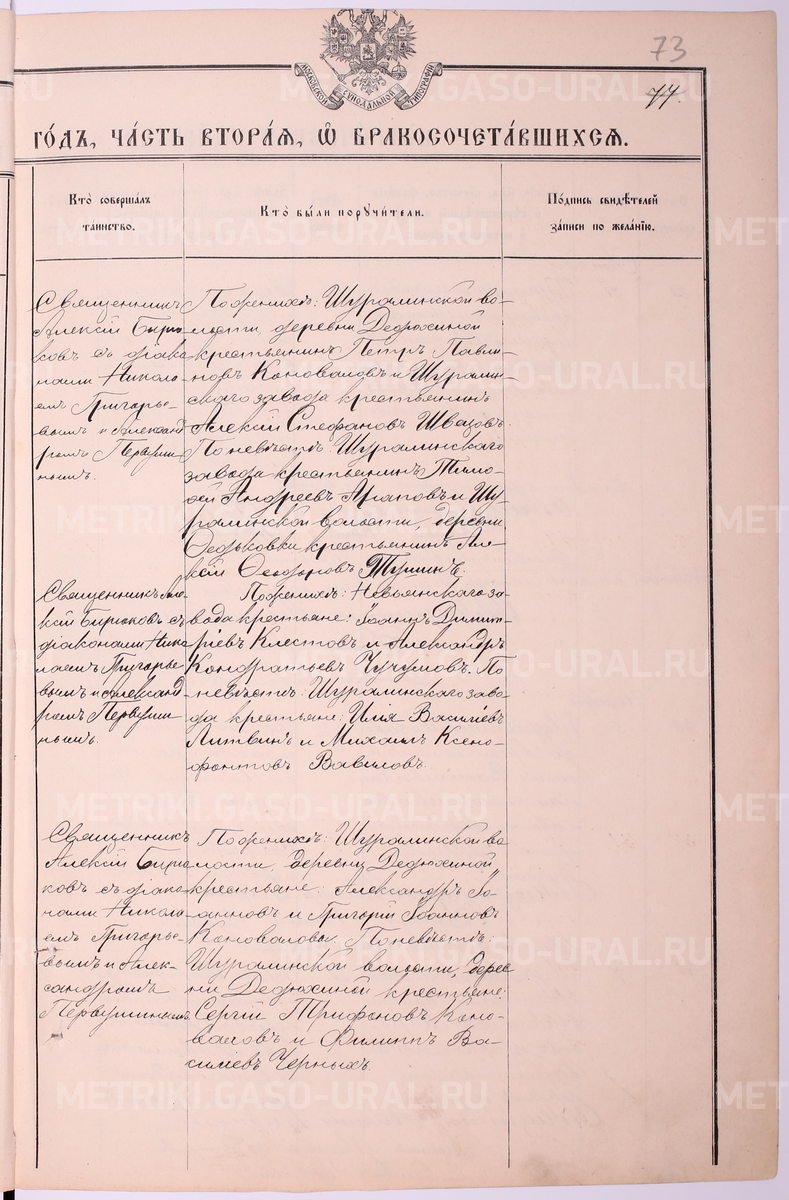 73
77.
МОСКОВСКОЙ СУНОДАЛЬНОЙ ТИПОГРАФІИ
ГО́ДЪ, ЧА́СТЬ ВТОРА́Я, Ѡ БРАКОСОЧЕТА́ВШИХСЯ.
Кто̀ соверша́лъ
та́инство.
Кто̀ бы́ли порꙋчи́тели.
По́дпись свидѣ́телей
за́писи по жела́нїю.
Священникъ
Алексій Бирю-
ковъ съ діако-
нами Никола-
емъ Григорье-
вымъ и Александ-
ромъ Первуши-
нымъ.
По женихѣ: Шуралинской во-
лости, деревни Дедюхиной
крестьянинъ Петръ Павли-
новъ Коноваловъ и Шуралин-
скаго завода крестьянинъ
Алексій Стефановъ Швазовъ.
По невѣстѣ: Шуралинскаго
завода крестьянинъ Тимо-
ѳей Андреевъ Араповъ и Шу-
ралинской волости, деревни
Ѳедьковки крестьянинъ Але-
ксій Ѳеодоровъ Тушинъ.
Священникъ Але-
ксій Бирюковъ съ
діаконами Нико-
лаемъ Григорье-
вымъ и Александ-
ромъ Первуши-
нымъ.
По женихѣ: Невьянскаго за-
вода крестьяне: Іоаннъ Димит-
ріевъ Клестовъ и Александръ
Кондратьевъ Чучумовъ. По
невѣстѣ: Шуралинскаго заво-
да крестьяне: Илія Васильевъ
Литвинъ и Михаилъ Ксено-
фонтовъ Вавиловъ.
Священникъ
Алексій Бирю-
ковъ съ діако-
нами Никола-
емъ Григорье-
вымъ и Алек-
сандромъ
Первушинымъ.
По женихѣ: Шуралинской во-
лости, деревни Дедюхиной
крестьяне: Александръ Іо-
анновъ и Григорій Іоанновъ
Коноваловы. По невѣстѣ:
Шуралинской волости, дерев-
ни Дедюхиной крестьяне:
Сергій Трифоновъ Коно-
валовъ и Филиппъ Ва-
силіевъ Черныхъ.
METRIKI.GASO-URAL.RU